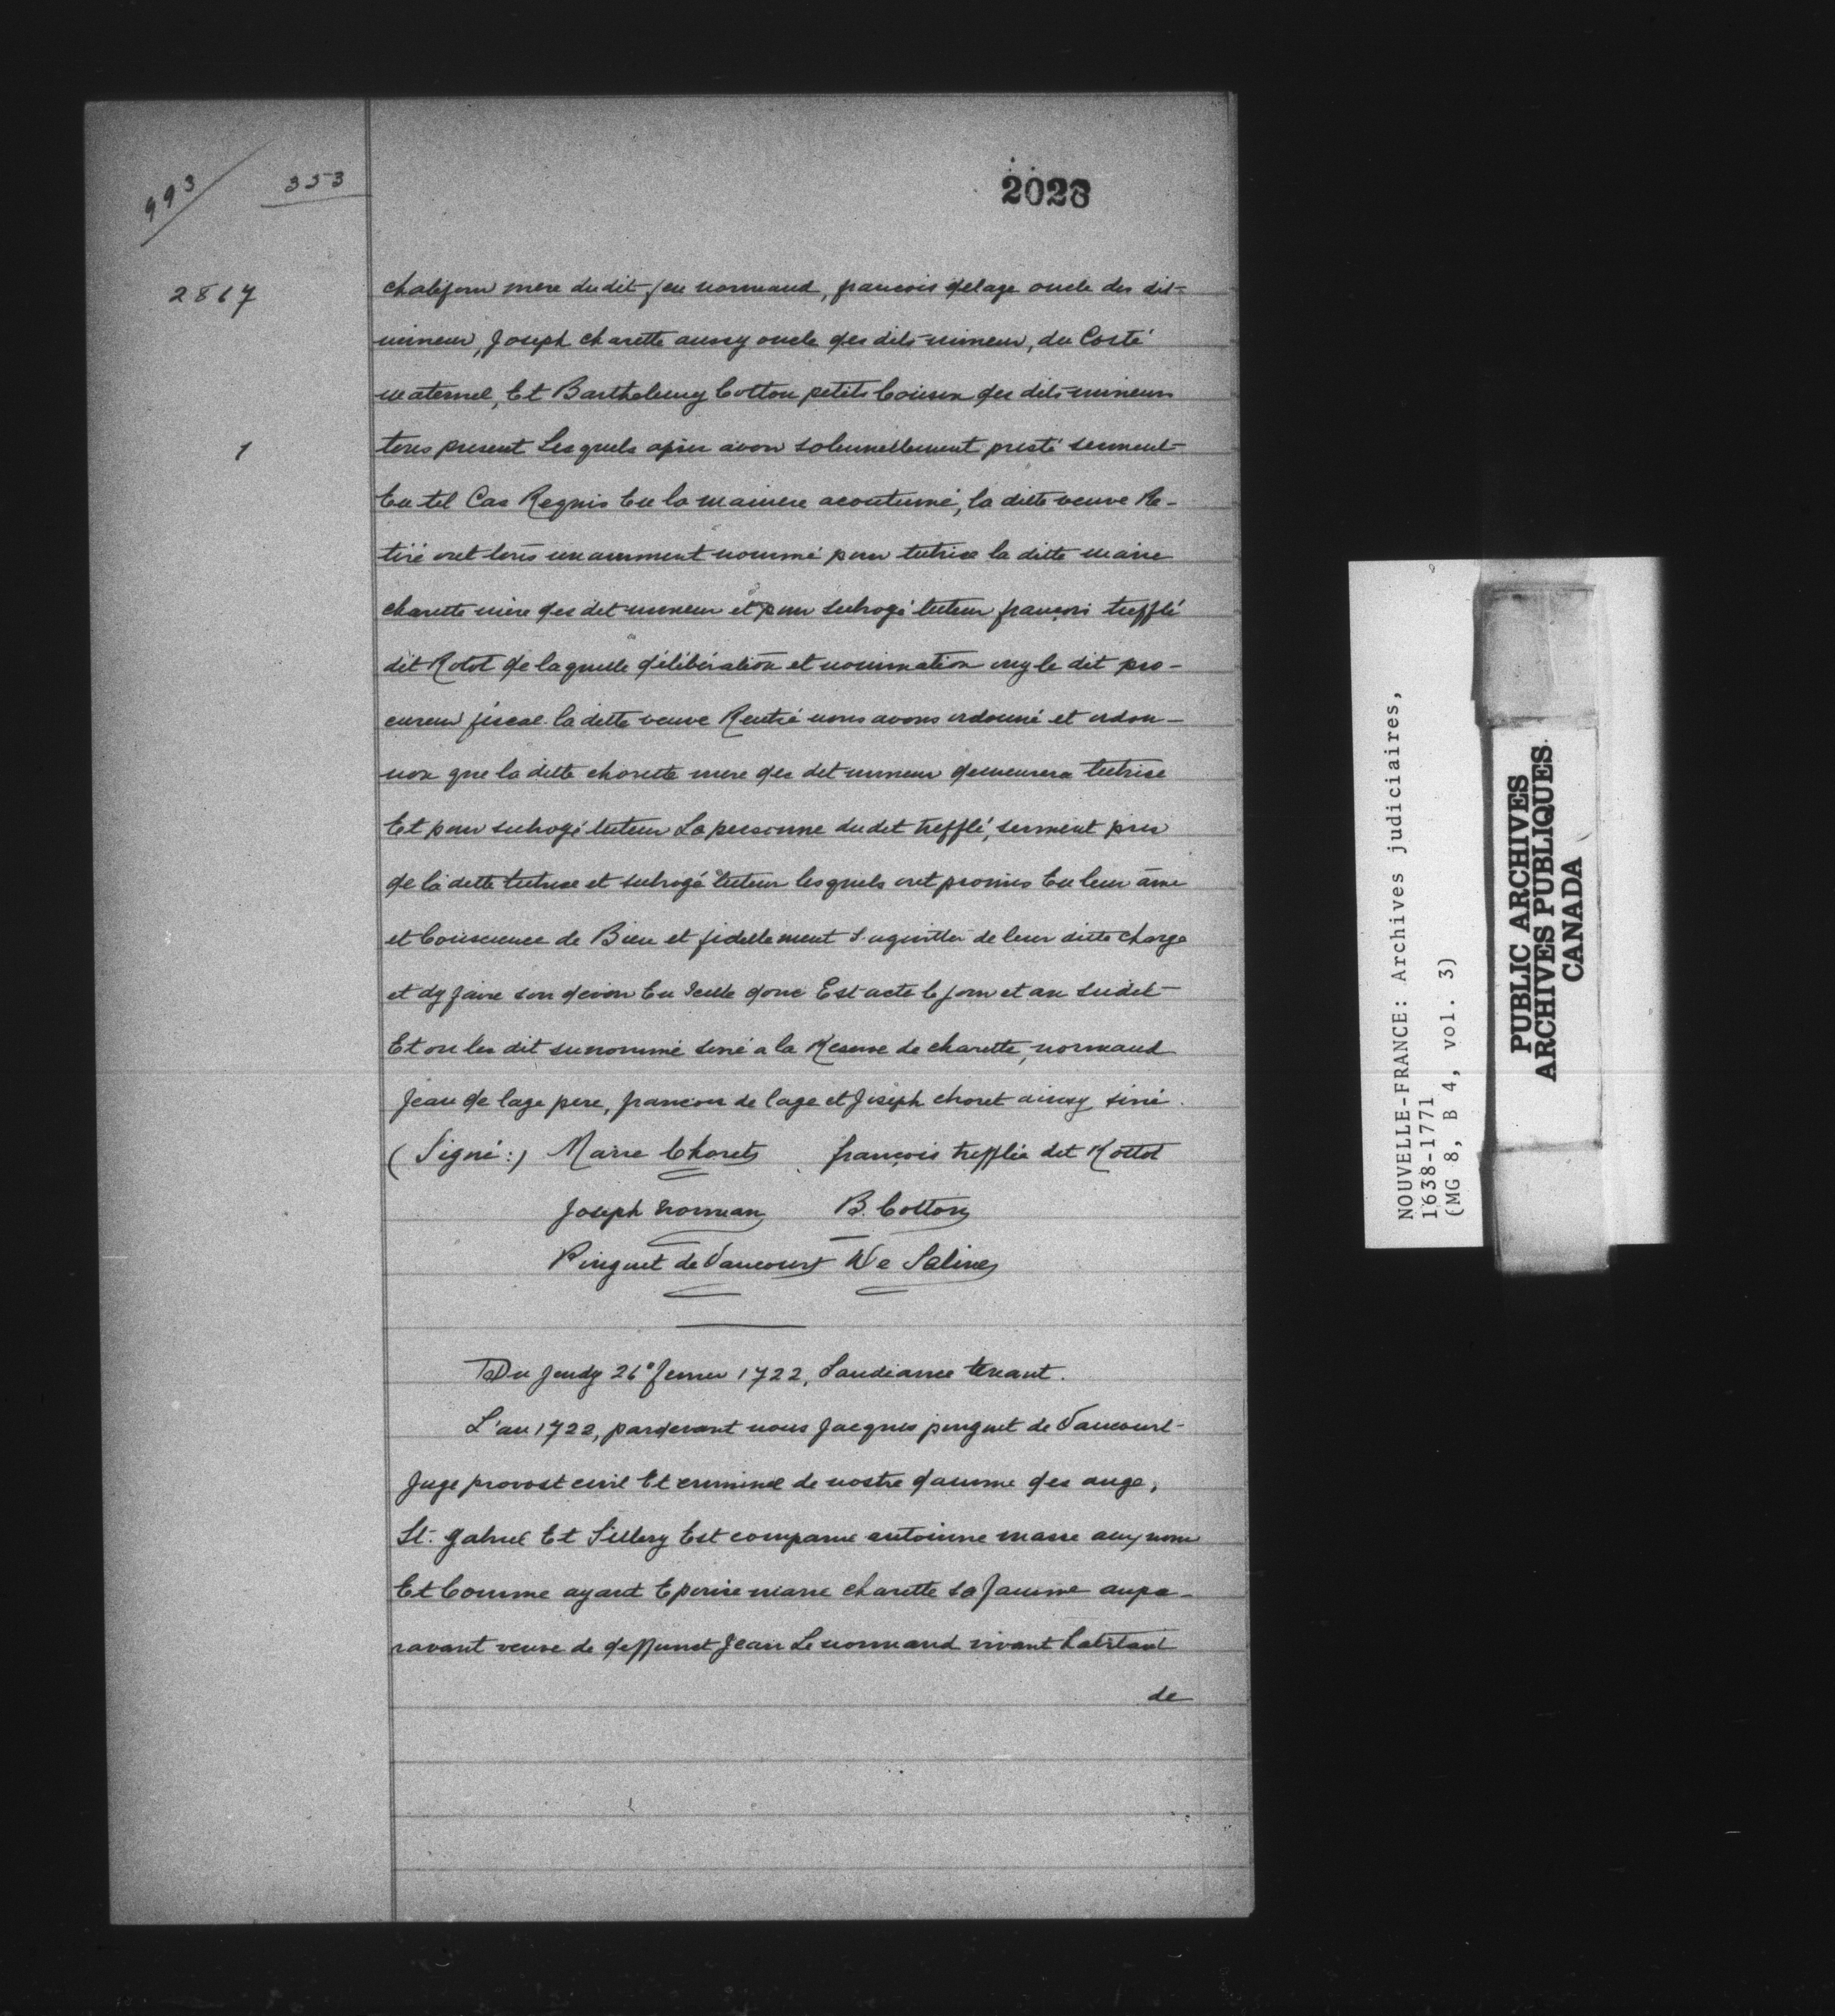 993
353
2028
2817
chalifour mere du dit feu normand, francois delage oncle des dit-
mineur, Joseph charette aussy oncle des dits mineur, du Costé
maternel, Et Barthelemy Cotton petits Cousin des dits mineurs
1
tous present Lesquels apres avoir solennellement presté serment
En tel Cas Requis En la maniere acoutumé, la ditte veuve Re-
tiré ont tous unanimment nommé pour tutrice la ditte marie
charette mère des dit mineur et pour subrogé tuteur françois trefflé
dit Rotot de laquelle délibération et nomination ouy le dit pro-
cureur fiscal la ditte veuve Rentré nous avons ordonné et ordon-
non que la ditte charette mere des dit mineur demeurera tutrice
Et pour subrogé tuteur La personne du dit trefflé, serment pris
de la ditte tutrice et subrogé tuteur lesquels ont promis En leur âme
et Conscience de Bien et fidellement s'aquitter de leur ditte charge
et dy faire son devoir En Icelle donc Est acte le jour et an susdit
Et on les dit sunommé siné a la Reserve de charette, normand
Jean de lage pere, francois de lage et Joseph choret ainsy siné.
(Signé:) Marie Chorets françois trefflée dit Rottot
Joseph Norman B. Cotton
Pinguet de Vaucourt De Saline
Du Jeudy 26° fevrier 1722, Laudiance tenant.
L'an 1722, pardevant nous Jacques pinguet de Vaucourt
Juge provost civil Et criminel de nostre damme des ange,
St. gabriel Et Sillery Est comparue antoinne masse au nom
Et Comme ayant Epousé marie charette sa famme aupa-
ravant veuve de deffunct Jean Le normand vivant habitant
de
NOUVELLE-FRANCE: Archives judiciaires,
1638-1771
(MG 8, B 4, vol. 3)
PUBLIC ARCHIVES
ARCHIVES PUBLIQUES
CANADA